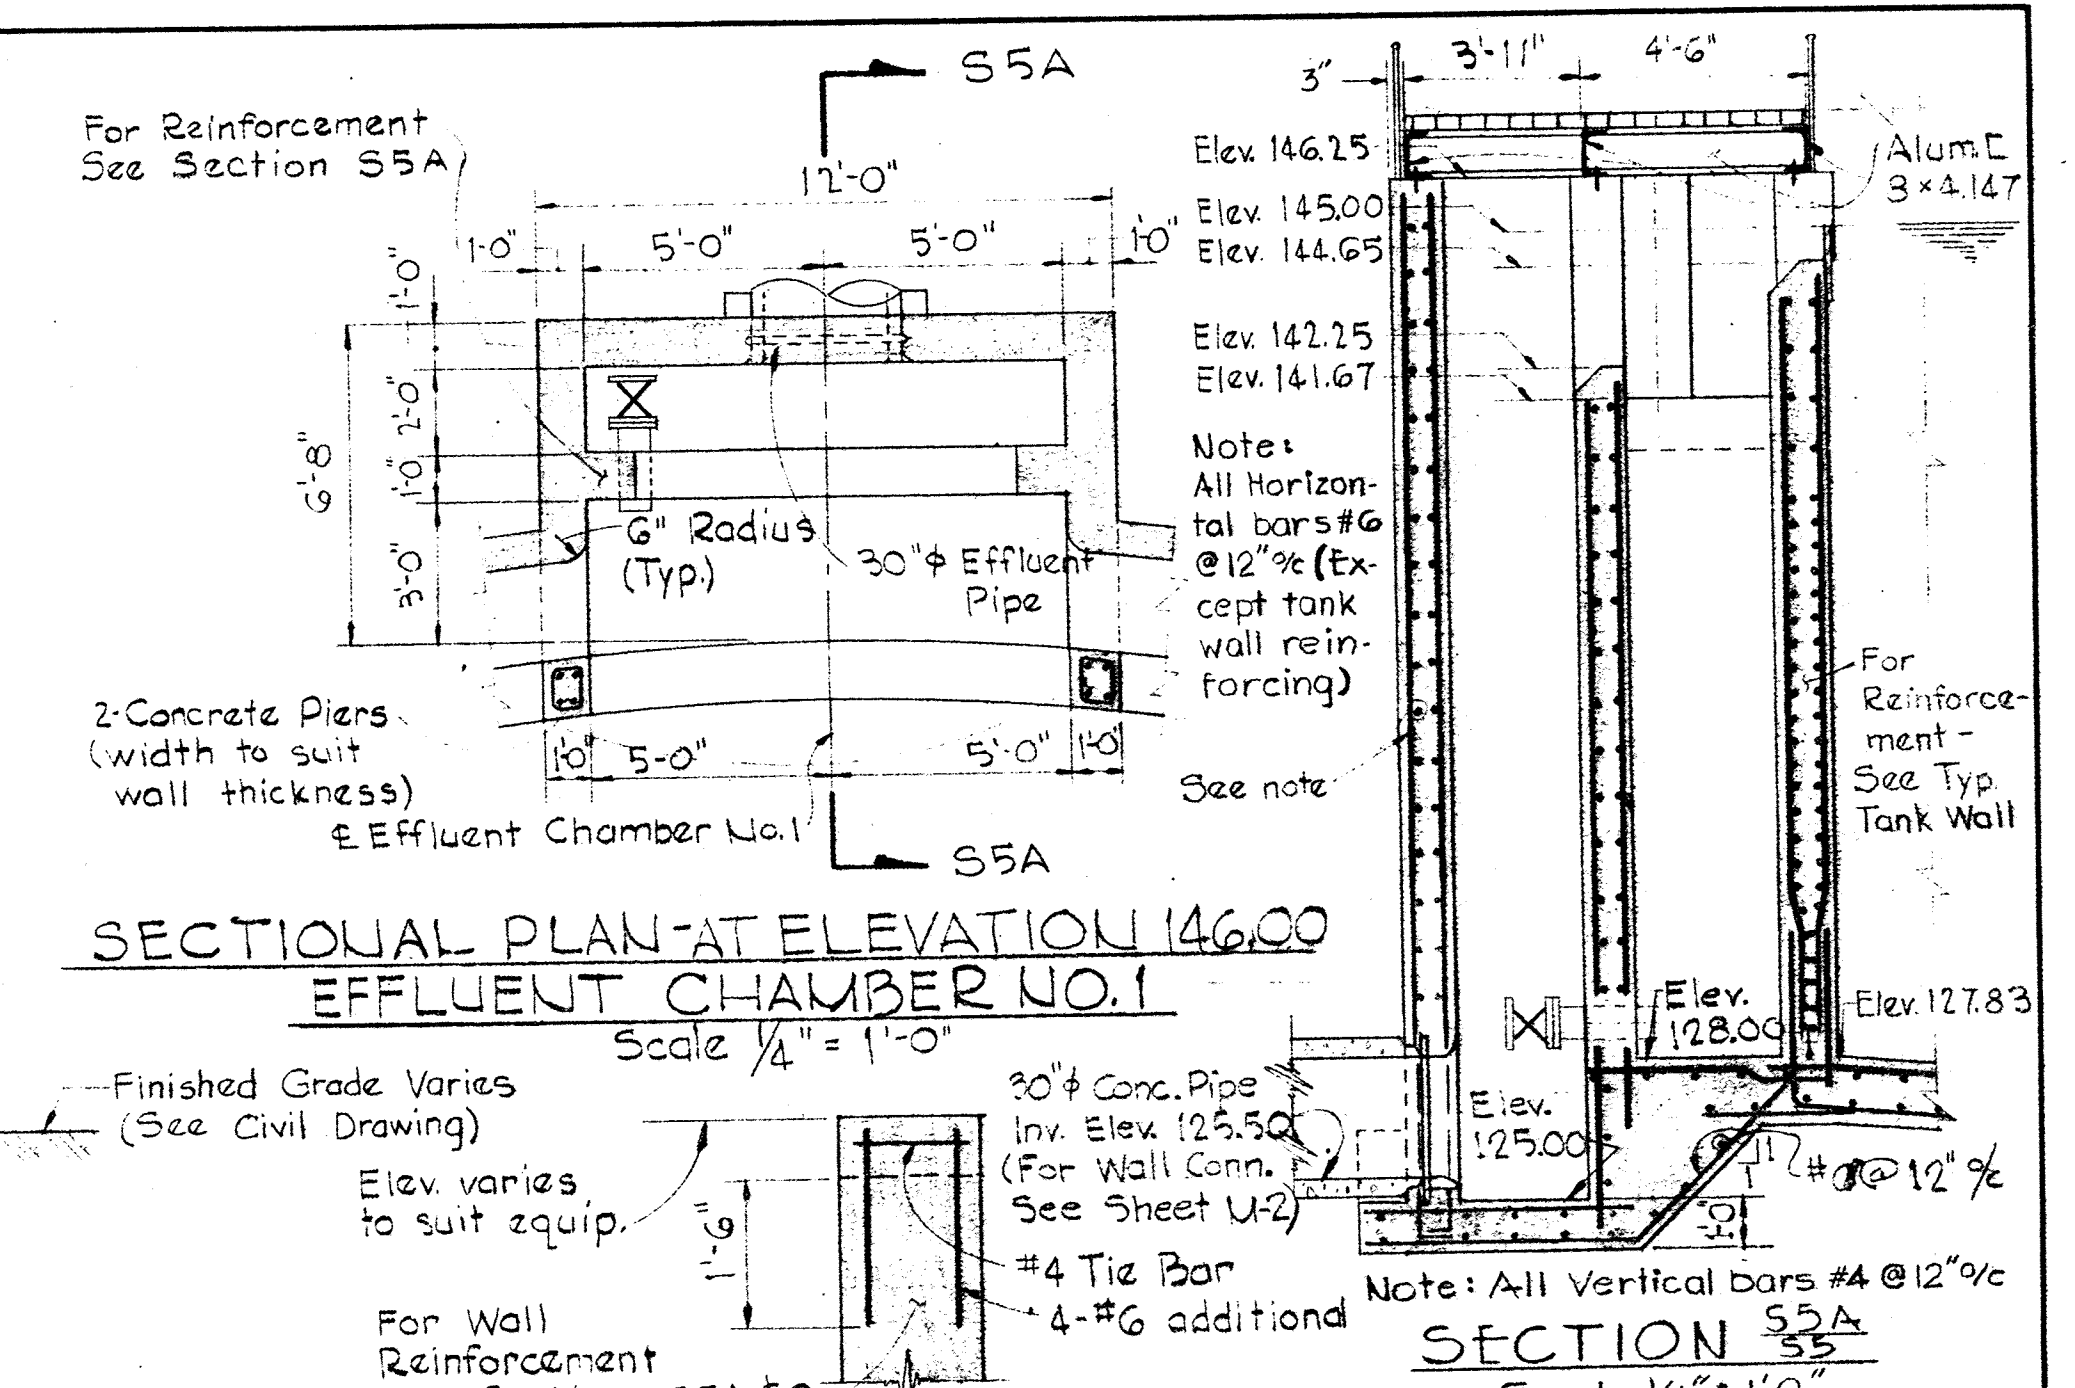 S5A
For Reinforcement
See Section S5A
12'-0"
1'-0"
5'-0"
5'-0"
1'-0"
1'-0"
2'-0"
1'-0"
3'-0"
6'-8"
6" Radius
(Typ.)
30"ϕ Effluent
Pipe
2-Concrete Piers
(width to suit
wall thickness)
1'-0"
5'-0"
5'-0"
1'-0"
℄ Effluent Chamber No.1
S5A
SECTIONAL PLAN-AT ELEVATION 146.00
EFFLUENT CHAMBER NO.1
Scale 1/4" = 1'-0"
Finished Grade Varies
(See Civil Drawing)
Elev. varies
to suit equip.
1'-6"
For Wall
Reinforcement
#4 Tie Bar
4-#6 additional
3"
3'-11"
4'-6"
Elev. 146.25
Elev. 145.00
Elev. 144.65
Elev. 142.25
Elev. 141.67
Alum. [
3 × 4.147
Note:
All Horizon-
tal bars #6
@ 12" o/c (Ex-
cept tank
wall rein-
forcing)
See note
For
Reinforce-
ment -
See Typ.
Tank Wall
Elev.
128.00
Elev. 127.83
30"ϕ Conc. Pipe
Inv. Elev. 125.50
(For Wall Conn.
See Sheet M-2)
Elev.
125.00
@ 12" o/c
1'-0"
Note: All Vertical bars #4 @ 12" o/c
SECTION S5A
S5